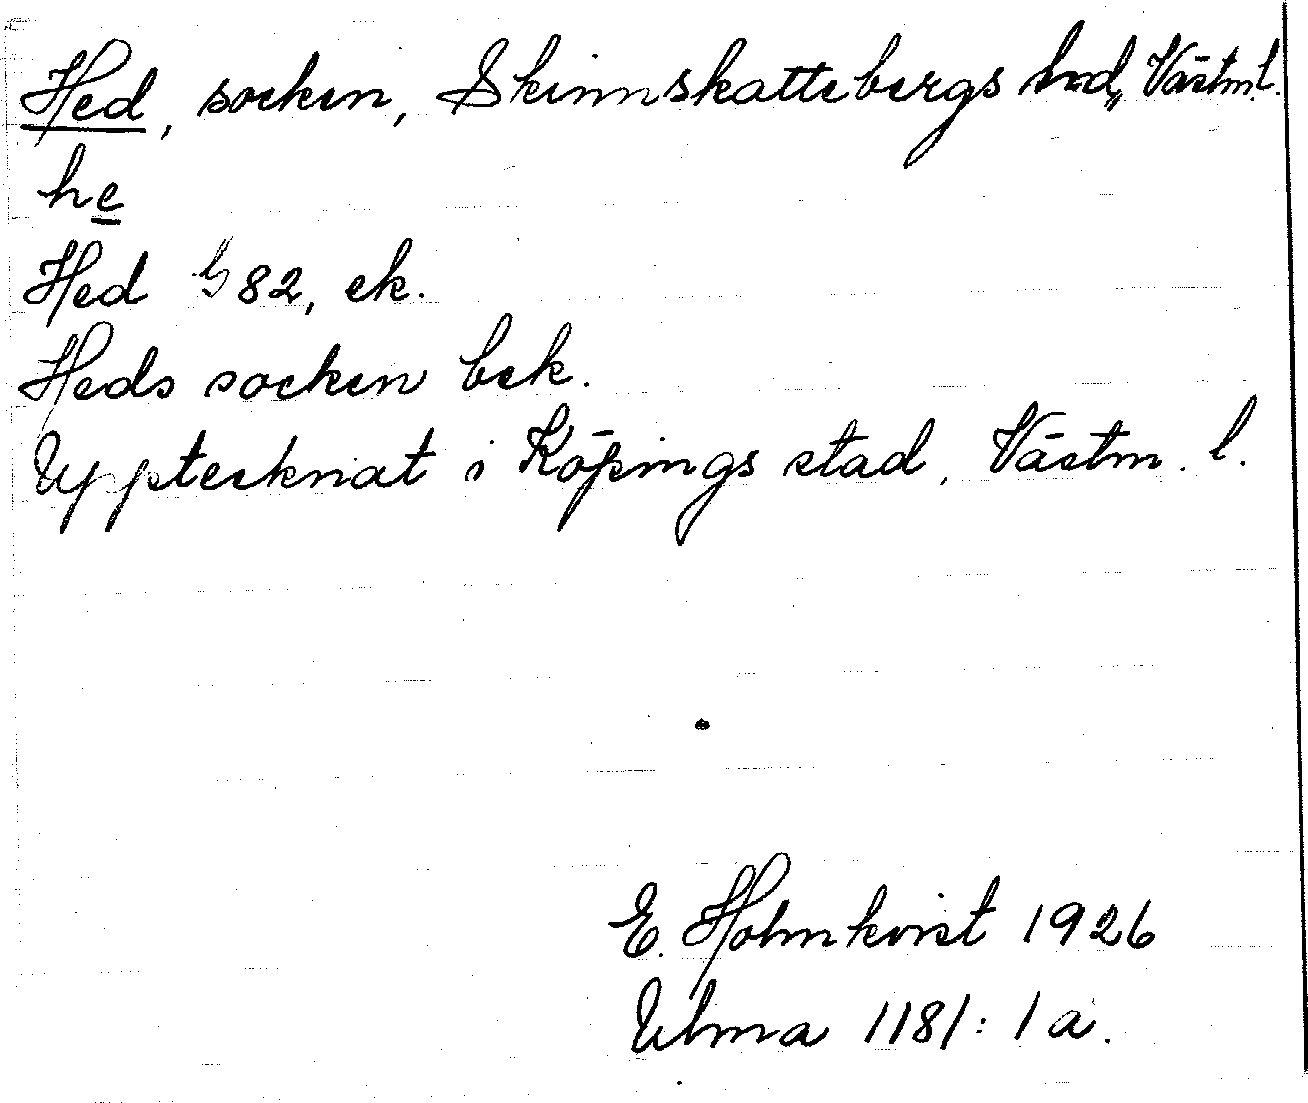 Hed, socken, Skinnskattebergs hd, Västm.l.
he
Hed G 82, ek.
Heds socken bek.
Upptecknat i Köpings stad, Västm. l.
E. Holmkvist 1926
Ulma 1181: 1 a.